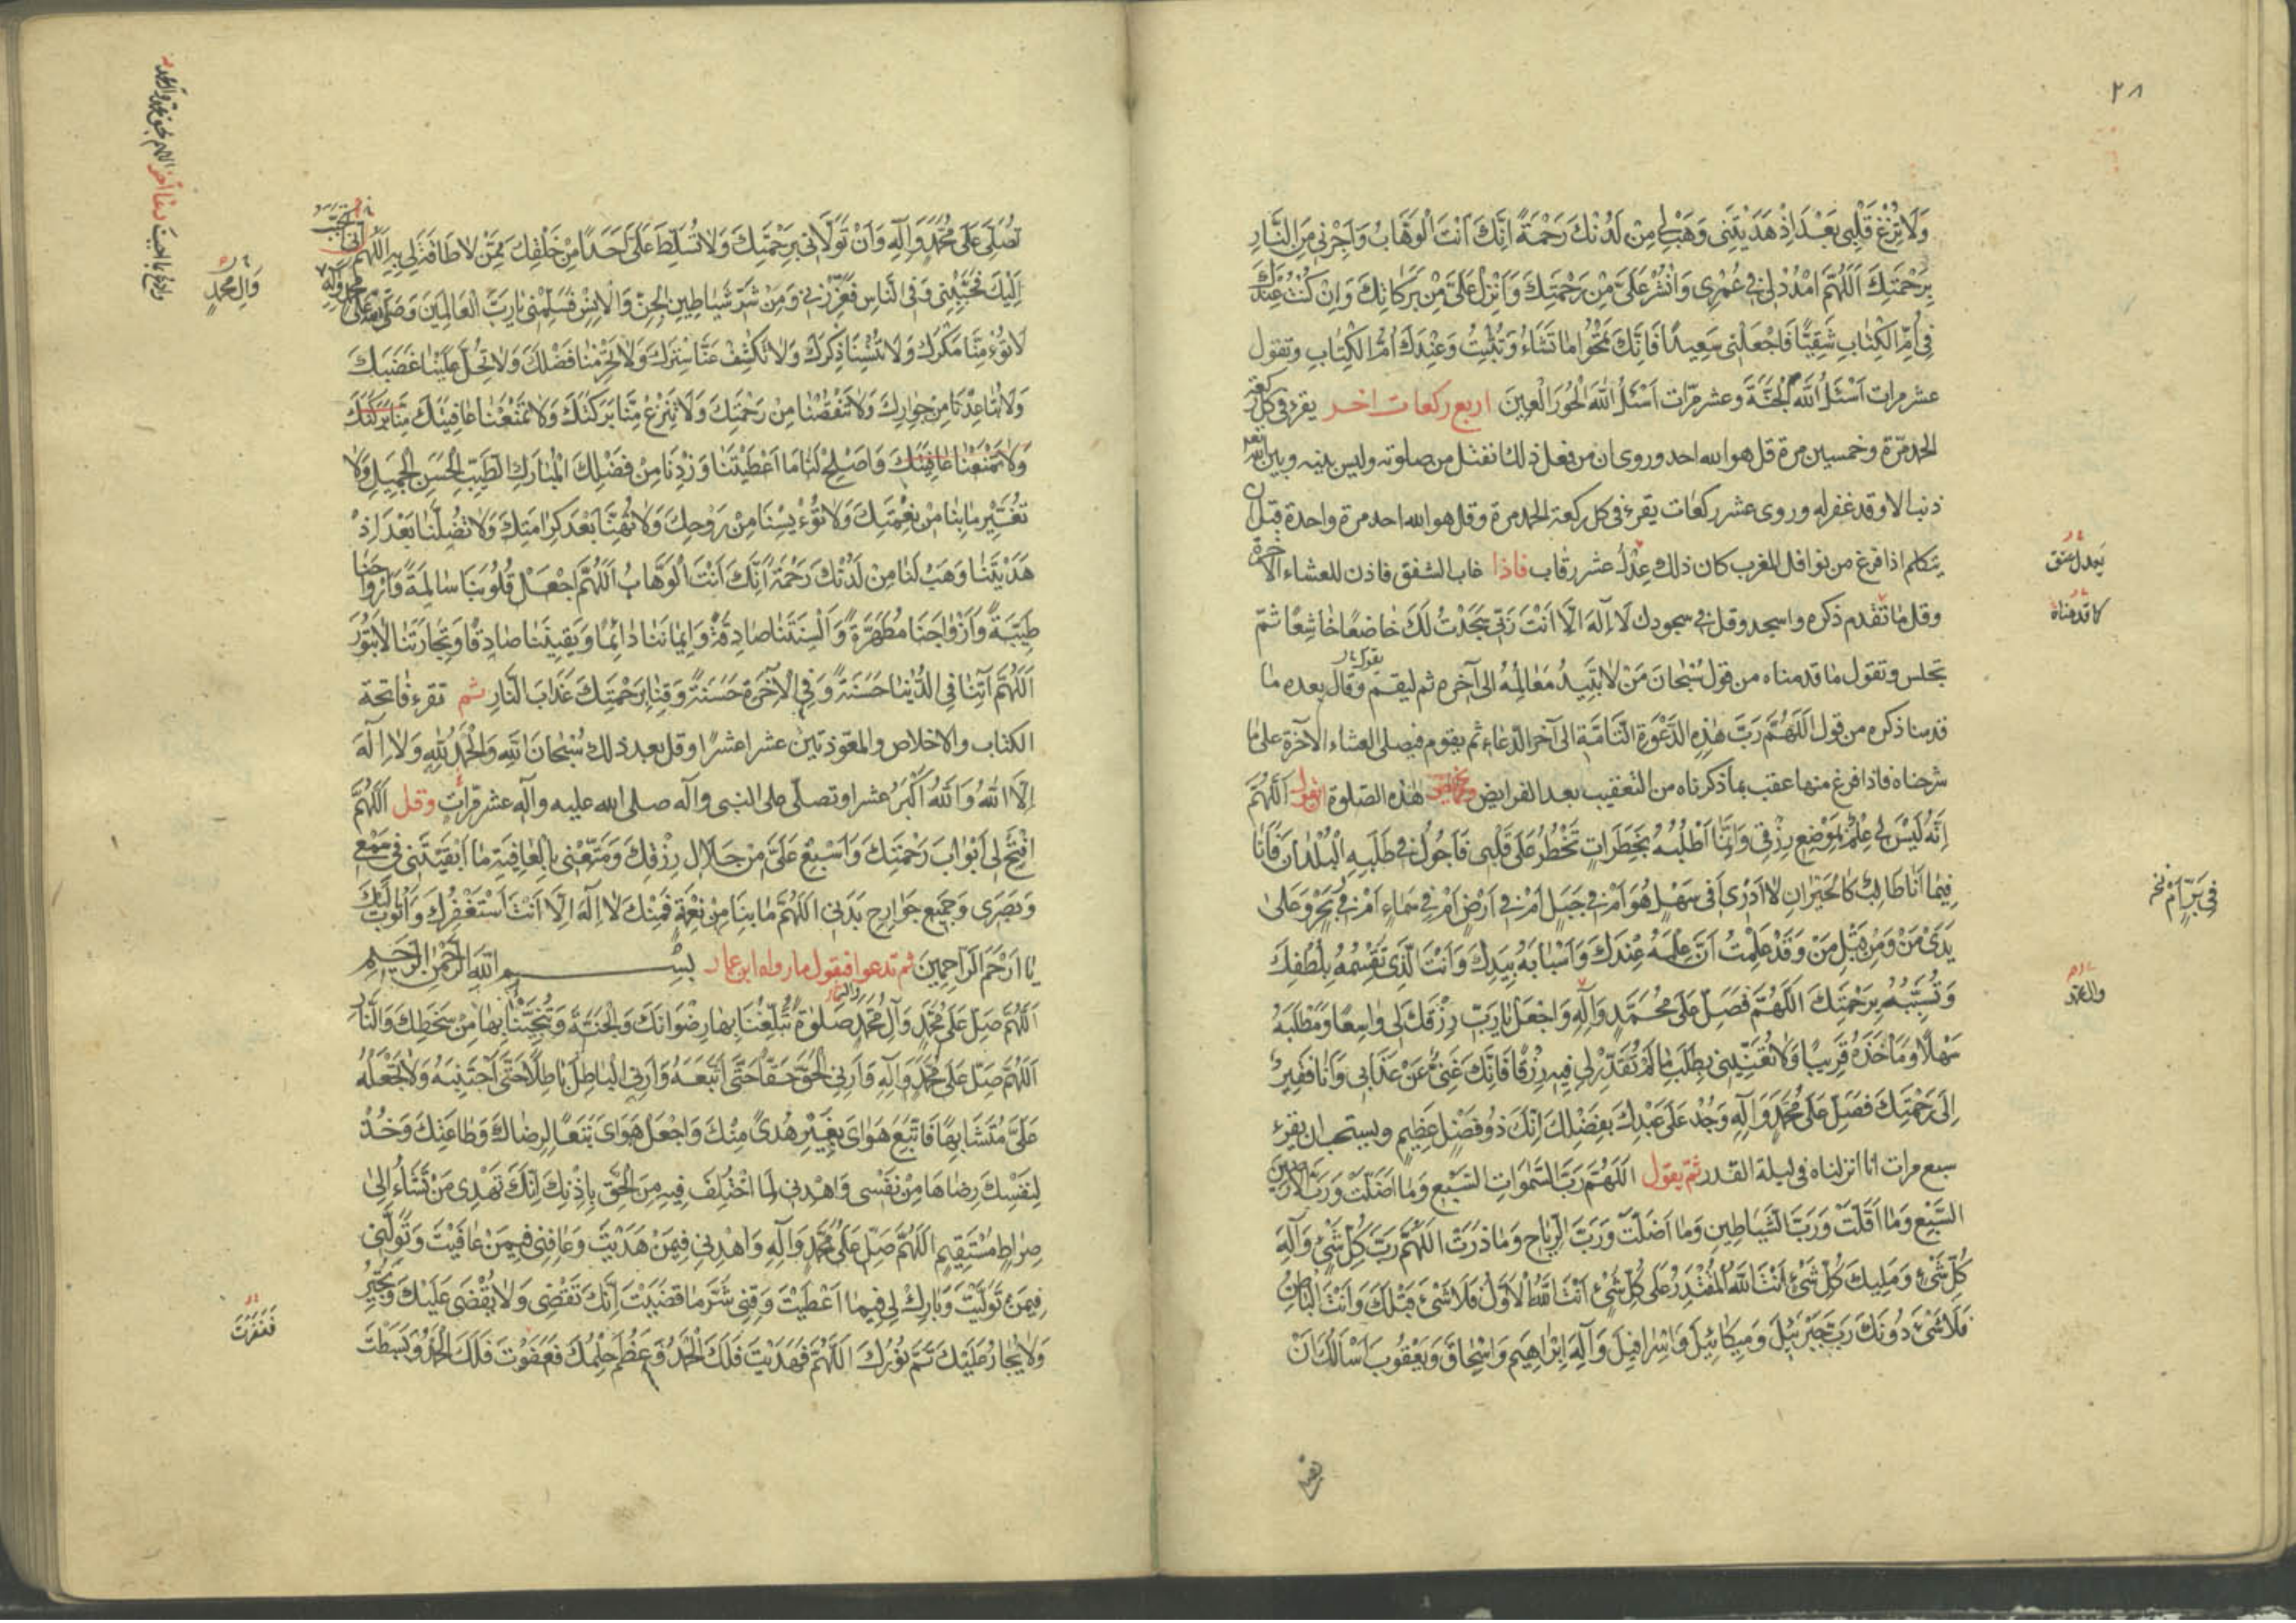 ٢٨
وَلَا تُزِغْ قَلْبِي بَعْدَ اِذْ هَدَيْتَنِي وَهَبْ لِي مِنْ لَدُنْكَ رَحْمَةً اِنَّكَ اَنْتَ الْوَهَّابُ وَاَجِرْنِي مِنَ النَّارِ
بِرَحْمَتِكَ اَللّٰهُمَّ امْدُدْ لِي فِي عُمْرِي وَانْشُرْ عَلَيَّ مِنْ رَحْمَتِكَ وَاَنْزِلْ عَلَيَّ مِنْ بَرَكَاتِكَ وَاِنْ كُنْتُ عِنْدَكَ
فِي اُمِّ الْكِتَابِ شَقِيًّا فَاجْعَلْنِي سَعِيدًا فَاِنَّكَ تَمْحُوا مَا تَشَاءُ وَتُثْبِتُ وَعِنْدَكَ اُمُّ الْكِتَابِ وتقول
عشر مرات اَسْئَلُ اللّٰهَ الْجَنَّةَ وعشر مرّات اَسْئَلُ اللّٰهَ الْحُورَ الْعِينَ اربع ركعات اخر يقرء في كل ركعة
الحمد مرّة وخمسين مرة قل هو الله احد وروى ان من فعل ذلك انفتل من صلوته وليس بينه وبين الله تعه
ذنبا الا وقد غفر له وروى عشر ركعات يقرء في كل ركعة الحمد مرة وقل هو الله احد مرة واحدة قبل ان
يتكلم اذا فرغ من نوافل المغرب كان ذلك عِدْلُ عشر رقاب فاذا غاب الشفق فاذن للعشاء الآخرة
يعدل عتق
وقل ما تقدم ذكره واسجد وقل في سجودك لَا اِلٰهَ اِلَّا اَنْتَ رَبِّي سَجَدْتُ لَكَ خَاضِعًا خَاشِعًا ثمّ
كما قدمناه
تجلس وتقول ما قدمناه من قول سُبْحَانَ مَنْ لَا تَبِيدُ مَعَالِمُهُ الى آخره ثم ليقم وقال بعده ما
يقول
قدمنا ذكره من قول اَللّٰهُمَّ رَبَّ هٰذِهِ الدَّعْوَةِ التَّامَّةِ الى آخر الدّعاء ثم يقوم فيصلى العشاء الآخرة على ما
شرحناه فاذا فرغ منها عقب بما ذكرناه من التعقيب بعد الفرايض هذه الصّلوة ان يقول اَللّٰهُمَّ
اِنَّهُ لَيْسَ لِي عِلْمٌ بِمَوْضِعِ رِزْقِي وَاِنَّمَا اَطْلُبُهُ بِخَطَرَاتٍ تَخْطُرُ عَلَى قَلْبِي فَاَجُولُ فِي طَلَبِهِ الْبُلْدَانَ فَاَنَا
فِيمَا اَنَا طَالِبٌ كَالْحَيْرَانِ لَا اَدْرِي اَفِي سَهْلٍ هُوَ اَمْ فِي جَبَلٍ اَمْ فِي اَرْضٍ اَمْ فِي سَمَاءٍ اَمْ فِي بَحْرٍ وَعَلَى
فِي بَرٍّ اَمْ بحر
يَدَيْ مَنْ وَمِنْ قِبَلِ مَنْ وَقَدْ عَلِمْتُ اَنَّ عِلْمَهُ عِنْدَكَ وَاَسْبَابَهُ بِيَدِكَ وَاَنْتَ الَّذِي تَقْسِمُهُ بِلُطْفِكَ
وَتُسَبِّبُهُ بِرَحْمَتِكَ اَللّٰهُمَّ فَصَلِّ عَلَى مُحَمَّدٍ وَآلِهِ وَاجْعَلْ يَا رَبِّ رِزْقَكَ لِي وَاسِعًا وَمَطْلَبَهُ
وآل محمد
سَهْلًا وَمَأْخَذَهُ قَرِيبًا وَلَا تُعَنِّنِي بِطَلَبِ مَا لَمْ تُقَدِّرْ لِي فِيهِ رِزْقًا فَاِنَّكَ غَنِيٌّ عَنْ عَذَابِي وَاَنَا فَقِيرٌ
اِلَى رَحْمَتِكَ فَصَلِّ عَلَى مُحَمَّدٍ وَآلِهِ وَجُدْ عَلَى عَبْدِكَ بِفَضْلِكَ اِنَّكَ ذُو فَضْلٍ عَظِيمٍ ويستحب ان يقرء
سبع مرات انا انزلناه في ليلة القدر ثمّ يقول اَللّٰهُمَّ رَبَّ السَّمٰوَاتِ السَّبْعِ وَمَا اَضَلَّتْ وَرَبَّ الْاَرَضِينَ
السَّبْعِ وَمَا اَقَلَّتْ وَرَبَّ الشَّيَاطِينِ وَمَا اَضَلَّتْ وَرَبَّ الرِّيَاحِ وَمَا ذَرَتْ اَللّٰهُمَّ رَبَّ كُلِّ شَيْءٍ وَاِلٰهَ
كُلِّ شَيْءٍ وَمَلِيكَ كُلِّ شَيْءٍ اَنْتَ اللّٰهُ الْمُقْتَدِرُ عَلَى كُلِّ شَيْءٍ اَنْتَ اللّٰهُ الْاَوَّلُ فَلَا شَيْءَ قَبْلَكَ وَاَنْتَ الْبَاطِنُ
فَلَا شَيْءَ دُونَكَ رَبَّ جَبْرَئِيلَ وَمِيكَائِيلَ وَاِسْرَافِيلَ وَاِلٰهَ اِبْرَاهِيمَ وَاِسْحَاقَ وَيَعْقُوبَ اَسْاَلُكَ اَنْ
تُصَلِّيَ عَلَى مُحَمَّدٍ وَآلِهِ وَاَنْ تَوَلَّانِي بِرَحْمَتِكَ وَلَا تُسَلِّطَ عَلَيَّ اَحَدًا مِنْ خَلْقِكَ مِمَّنْ لَا طَاقَةَ لِي بِهِ اَللّٰهُمَّ اِنِّي اَتَحَبَّبُ
اِلَيْكَ فَحَبِّبْنِي وَفِي النَّاسِ فَعَزِّزْنِي وَمِنْ شَرِّ شَيَاطِينِ الْجِنِّ وَالْاِنْسِ فَسَلِّمْنِي يَا رَبَّ الْعَالَمِينَ وَصَلِّ عَلَى مُحَمَّدٍ وَآلِهِ
وَآلِ مُحَمَّدٍ
لَا تُؤْمِنَّا مَكْرَكَ وَلَا تُنْسِنَا ذِكْرَكَ وَلَا تَكْشِفْ عَنَّا سِتْرَكَ وَلَا تَحْرِمْنَا فَضْلَكَ وَلَا تُحِلَّ عَلَيْنَا غَضَبَكَ
وَلَا تُبَاعِدْنَا مِنْ جِوَارِكَ وَلَا تَنْقُصْنَا مِنْ رَحْمَتِكَ وَلَا تَنْزِعْ مِنَّا بَرَكَتَكَ وَلَا تَمْنَعْنَا عَافِيَتَكَ مِنَّا بَرَكَتَكَ
وَلَا تَمْنَعْنَا عَافِيَتَكَ وَاَصْلِحْ لَنَا مَا اَعْطَيْتَنَا وَزِدْنَا مِنْ فَضْلِكَ الْمُبَارَكِ الطَّيِّبِ الْحَسَنِ الْجَمِيلِ وَلَا
تُغَيِّرْ مَا بِنَا مِنْ نِعْمَتِكَ وَلَا تُؤْيِسْنَا مِنْ رَوْحِكَ وَلَا تُهِنَّا بَعْدَ كَرَامَتِكَ وَلَا تُضِلَّنَا بَعْدَ اِذْ
هَدَيْتَنَا وَهَبْ لَنَا مِنْ لَدُنْكَ رَحْمَةً اِنَّكَ اَنْتَ الْوَهَّابُ اَللّٰهُمَّ اجْعَلْ قُلُوبَنَا سَالِمَةً وَاَرْوَاحَنَا
طَيِّبَةً وَاَزْوَاجَنَا مُطَهَّرَةً وَاَلْسِنَتَنَا صَادِقَةً وَاِيمَانَنَا دَائِمًا وَيَقِينَنَا صَادِقًا وَتِجَارَتَنَا لَا تَبُورُ
اَللّٰهُمَّ آتِنَا فِي الدُّنْيَا حَسَنَةً وَفِي الْآخِرَةِ حَسَنَةً وَقِنَا بِرَحْمَتِكَ عَذَابَ النَّارِ ثم تقرء فاتحة
الكتاب والاخلاص والمعوّذتين عشرا عشرًا وقل بعد ذلك سُبْحَانَ اللّٰهِ وَالْحَمْدُ لِلّٰهِ وَلَا اِلٰهَ
اِلَّا اللّٰهُ وَاللّٰهُ اَكْبَرُ عشرا وتصلّي على النبي وآله صلى الله عليه وآله عشر مرّات وقل اَللّٰهُمَّ
افْتَحْ لِي اَبْوَابَ رَحْمَتِكَ وَاَسْبِغْ عَلَيَّ مِنْ حَلَالِ رِزْقِكَ وَمَتِّعْنِي بِالْعَافِيَةِ مَا اَبْقَيْتَنِي فِي سَمْعِي
وَبَصَرِي وَجَمِيعِ جَوَارِحِ بَدَنِي اَللّٰهُمَّ مَا بِنَا مِنْ نِعْمَةٍ فَمِنْكَ لَا اِلٰهَ اِلَّا اَنْتَ اَسْتَغْفِرُكَ وَاَتُوبُ اِلَيْكَ
يَا اَرْحَمَ الرَّاحِمِينَ ثم تدعوا فيقول ما رواه ابن عمار بِسْمِ اللّٰهِ الرَّحْمٰنِ الرَّحِيمِ
اَللّٰهُمَّ صَلِّ عَلَى مُحَمَّدٍ وَآلِ مُحَمَّدٍ صَلٰوةً تُبَلِّغُنَا بِهَا رِضْوَانَكَ وَالْجَنَّةَ وَتُنْجِينَا بِهَا مِنْ سَخَطِكَ وَالنَّارِ
اَللّٰهُمَّ صَلِّ عَلَى مُحَمَّدٍ وَآلِهِ وَاَرِنِي الْحَقَّ حَقًّا حَتَّى اَتَّبِعَهُ وَاَرِنِي الْبَاطِلَ بَاطِلًا حَتَّى اَجْتَنِبَهُ وَلَا تَجْعَلْهُ
عَلَيَّ مُتَشَابِهًا فَاَتَّبِعَ هَوَايَ بِغَيْرِ هُدًى مِنْكَ وَاجْعَلْ هَوَايَ تَبَعًا لِرِضَاكَ وَطَاعَتِكَ وَخُذْ
لِنَفْسِكَ رِضَاهَا مِنْ نَفْسِي وَاهْدِنِي لِمَا اخْتُلِفَ فِيهِ مِنَ الْحَقِّ بِاِذْنِكَ اِنَّكَ تَهْدِي مَنْ تَشَاءُ اِلَى
صِرَاطٍ مُسْتَقِيمٍ اَللّٰهُمَّ صَلِّ عَلَى مُحَمَّدٍ وَآلِهِ وَاهْدِنِي فِيمَنْ هَدَيْتَ وَعَافِنِي فِيمَنْ عَافَيْتَ وَتَوَلَّنِي
فِيمَنْ تَوَلَّيْتَ وَبَارِكْ لِي فِيمَا اَعْطَيْتَ وَقِنِي شَرَّ مَا قَضَيْتَ اِنَّكَ تَقْضِي وَلَا يُقْضَى عَلَيْكَ وَتُجِيرُ
وَلَا يُجَارُ عَلَيْكَ تَمَّ نُورُكَ اَللّٰهُمَّ فَهَدَيْتَ فَلَكَ الْحَمْدُ وَعَظُمَ حِلْمُكَ فَعَفَوْتَ فَلَكَ الْحَمْدُ وَبَسَطْتَ
فَغَفَرْتَ